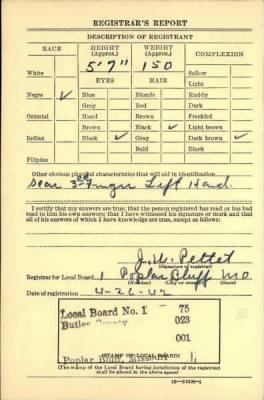 REGISTRAR'S REPORT
DESCRIPTION OF REGISTRANT
RACE HEIGHT (Approx.) WEIGHT (Approx.) COMPLEXION
5'7" 150
White Sallow
EYES HAIR Light
Negro ✓ Blue Blonde Ruddy
Gray Red Dark
Oriental Hazel Brown Freckled
Brown Black ✓ Light brown
Indian Black ✓ Gray Dark brown ✓
Bald Black
Filipino
Other obvious physical characteristics that will aid in identification
Scar 3rd Finger Left Hand.
I certify that my answers are true; that the person registered has read or has had
read to him his own answers; that I have witnessed his signature or mark and that
all of his answers of which I have knowledge are true, except as follows:
J. M. Pettet
(Signature of registrar)
Registrar for Local Board 1 Poplar Bluff MO
(Number) (City or county) (State)
Date of registration 4-26-42
Local Board No. 1 75
Butler County 023
001
Poplar Bluff, Missouri
(STAMP OF LOCAL BOARD)
(The stamp of the Local Board having jurisdiction of the registrant
shall be placed in the above space.)